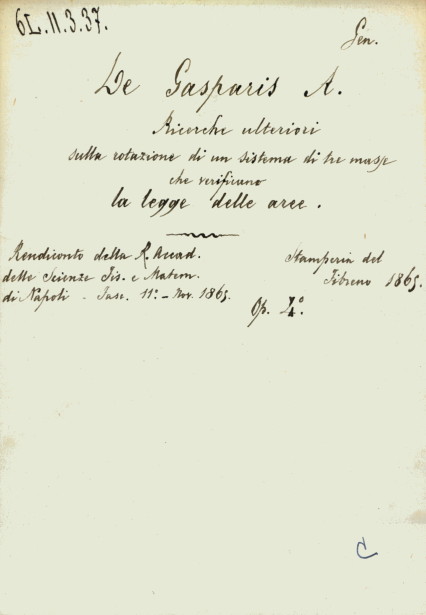 6L.11.3.37.
Gen.
De Gasparis A.
Ricerche ulteriori
sulla rotazione di un sistema di tre masse
che verificano
la legge delle aree.
Rendiconto della R. Accad.
delle Scienze Fis. e Matem.
di Napoli - Fasc. 11º - Nov. 1865.
Stamperia del
Fibreno 1865
Op. 4º.
C